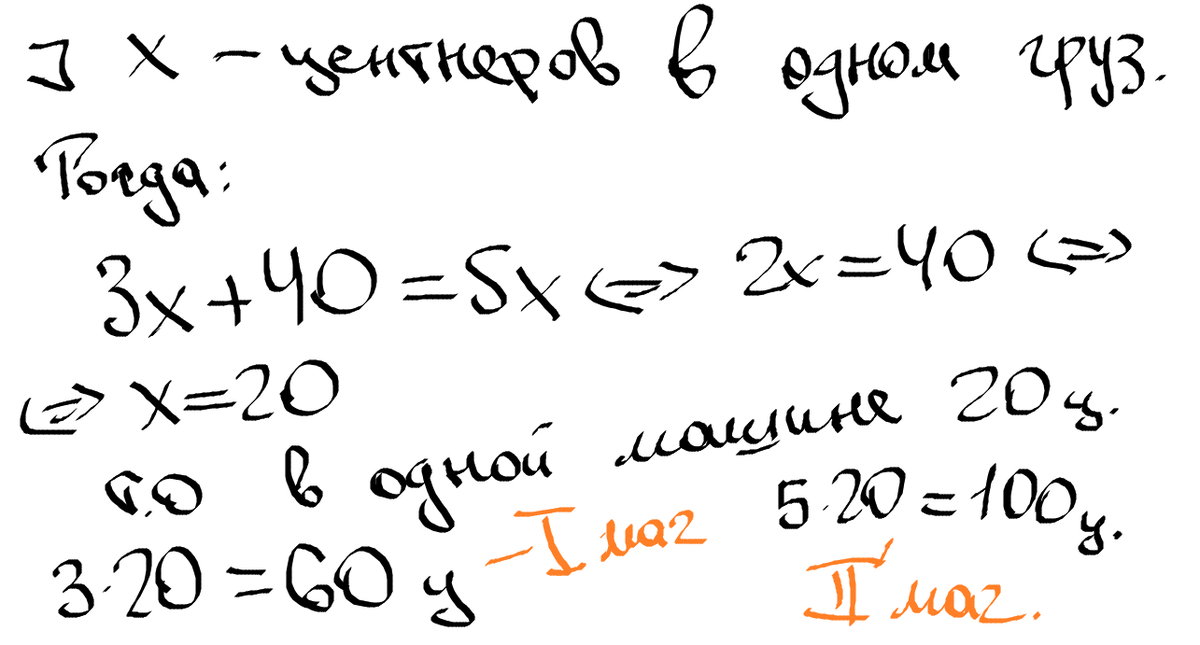 ] x - центнеров в одном груз.
Тогда:
3x + 40 = 5x <=> 2x = 40 <=>
<=> x = 20
т.о в одной машине 20 ц.
3·20 = 60 ц - I маг 5·20 = 100 ц.
II маг.